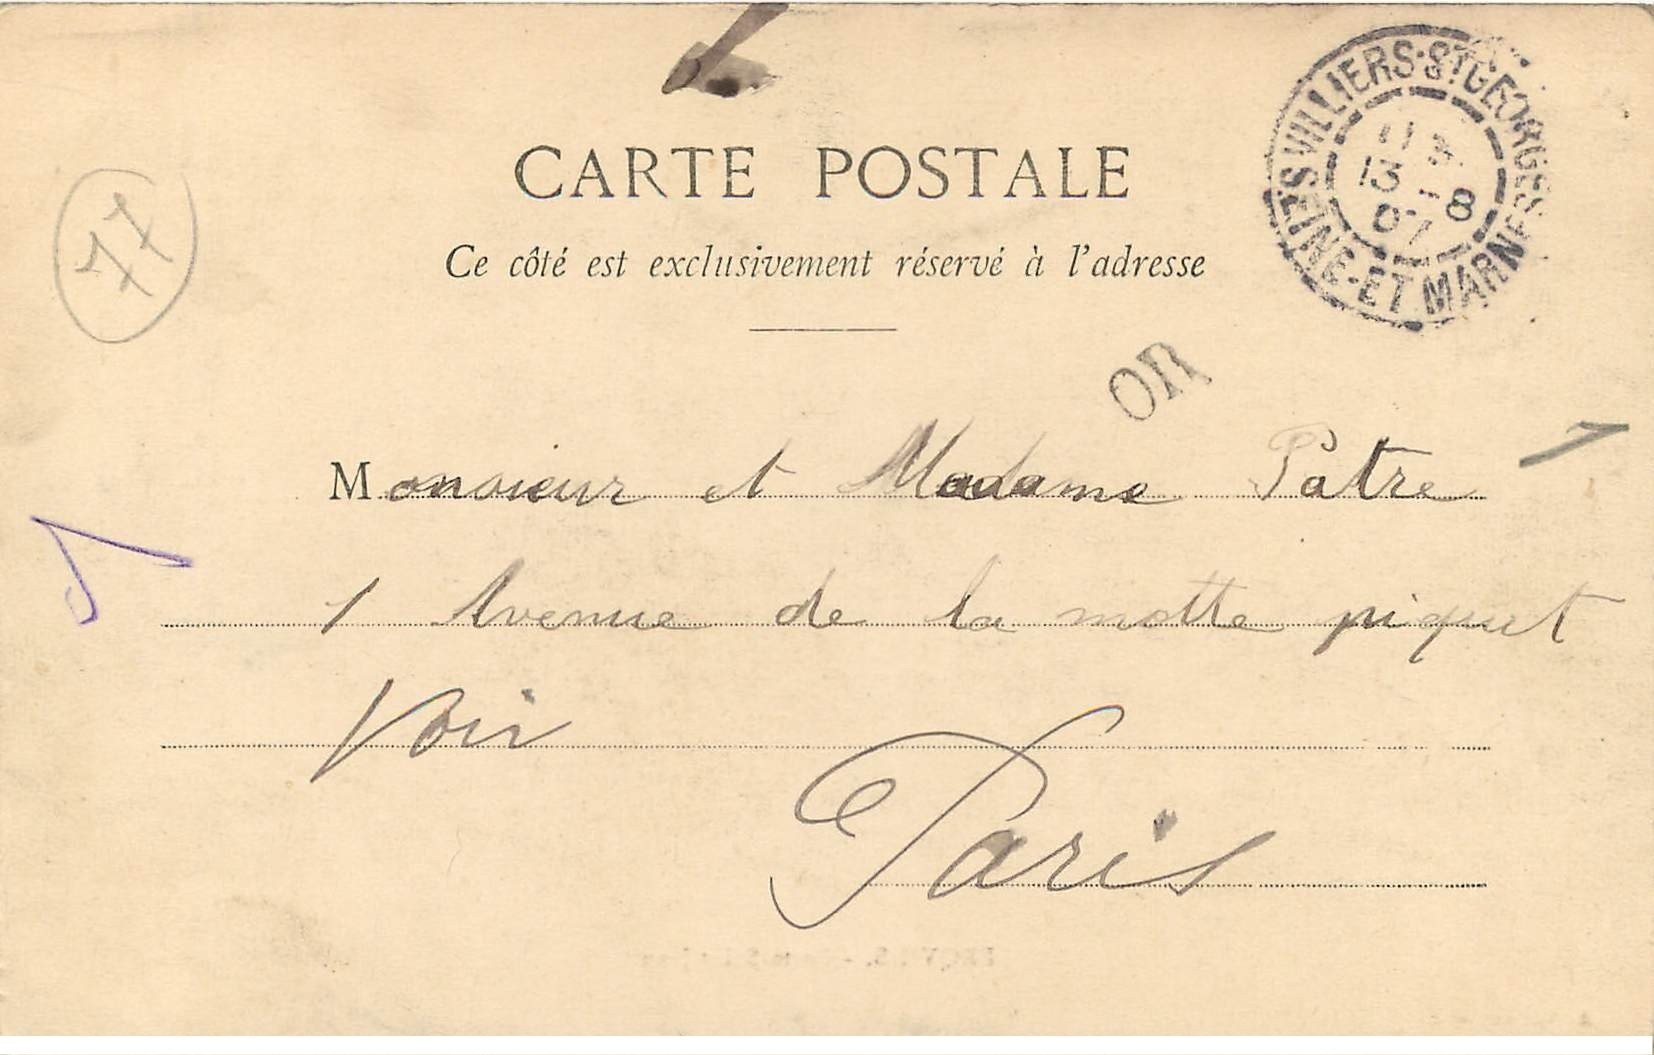 CARTE POSTALE
Ce côté est exclusivement réservé à l'adresse
VILLIERS-ST GEORGES
SEINE-ET-MARNE
13 -8
07
77
OR
Monsieur et Madame Patre
1 Avenue de la motte piquet
Voir
Paris